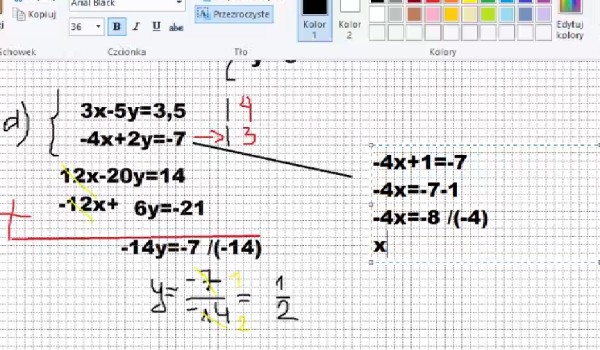 Arial Black
Kopiuj
36
B I U abc
Przezroczyste
Schowek
Czcionka
Tło
Kolor 1
Kolor 2
Edytuj kolory
Kolory
d)
3x-5y=3,5 | 4
-4x+2y=-7 → | 3
12x-20y=14
-12x+ 6y=-21
+
-14y=-7 /(-14)
y= -7/-14 = 1/2
1
2
-4x+1=-7
-4x=-7-1
-4x=-8 /(-4)
x